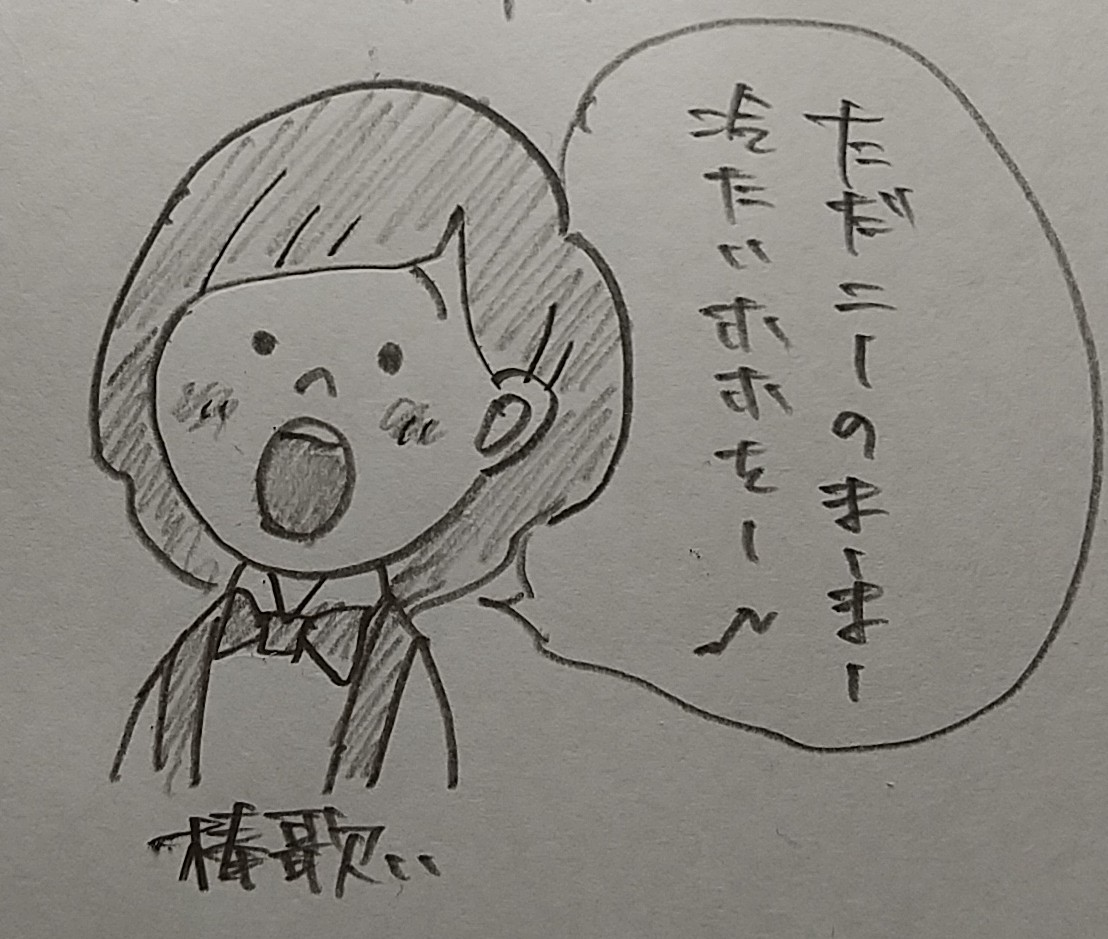 ただこーのまーまー
冷たいホホをー〜
棒歌い